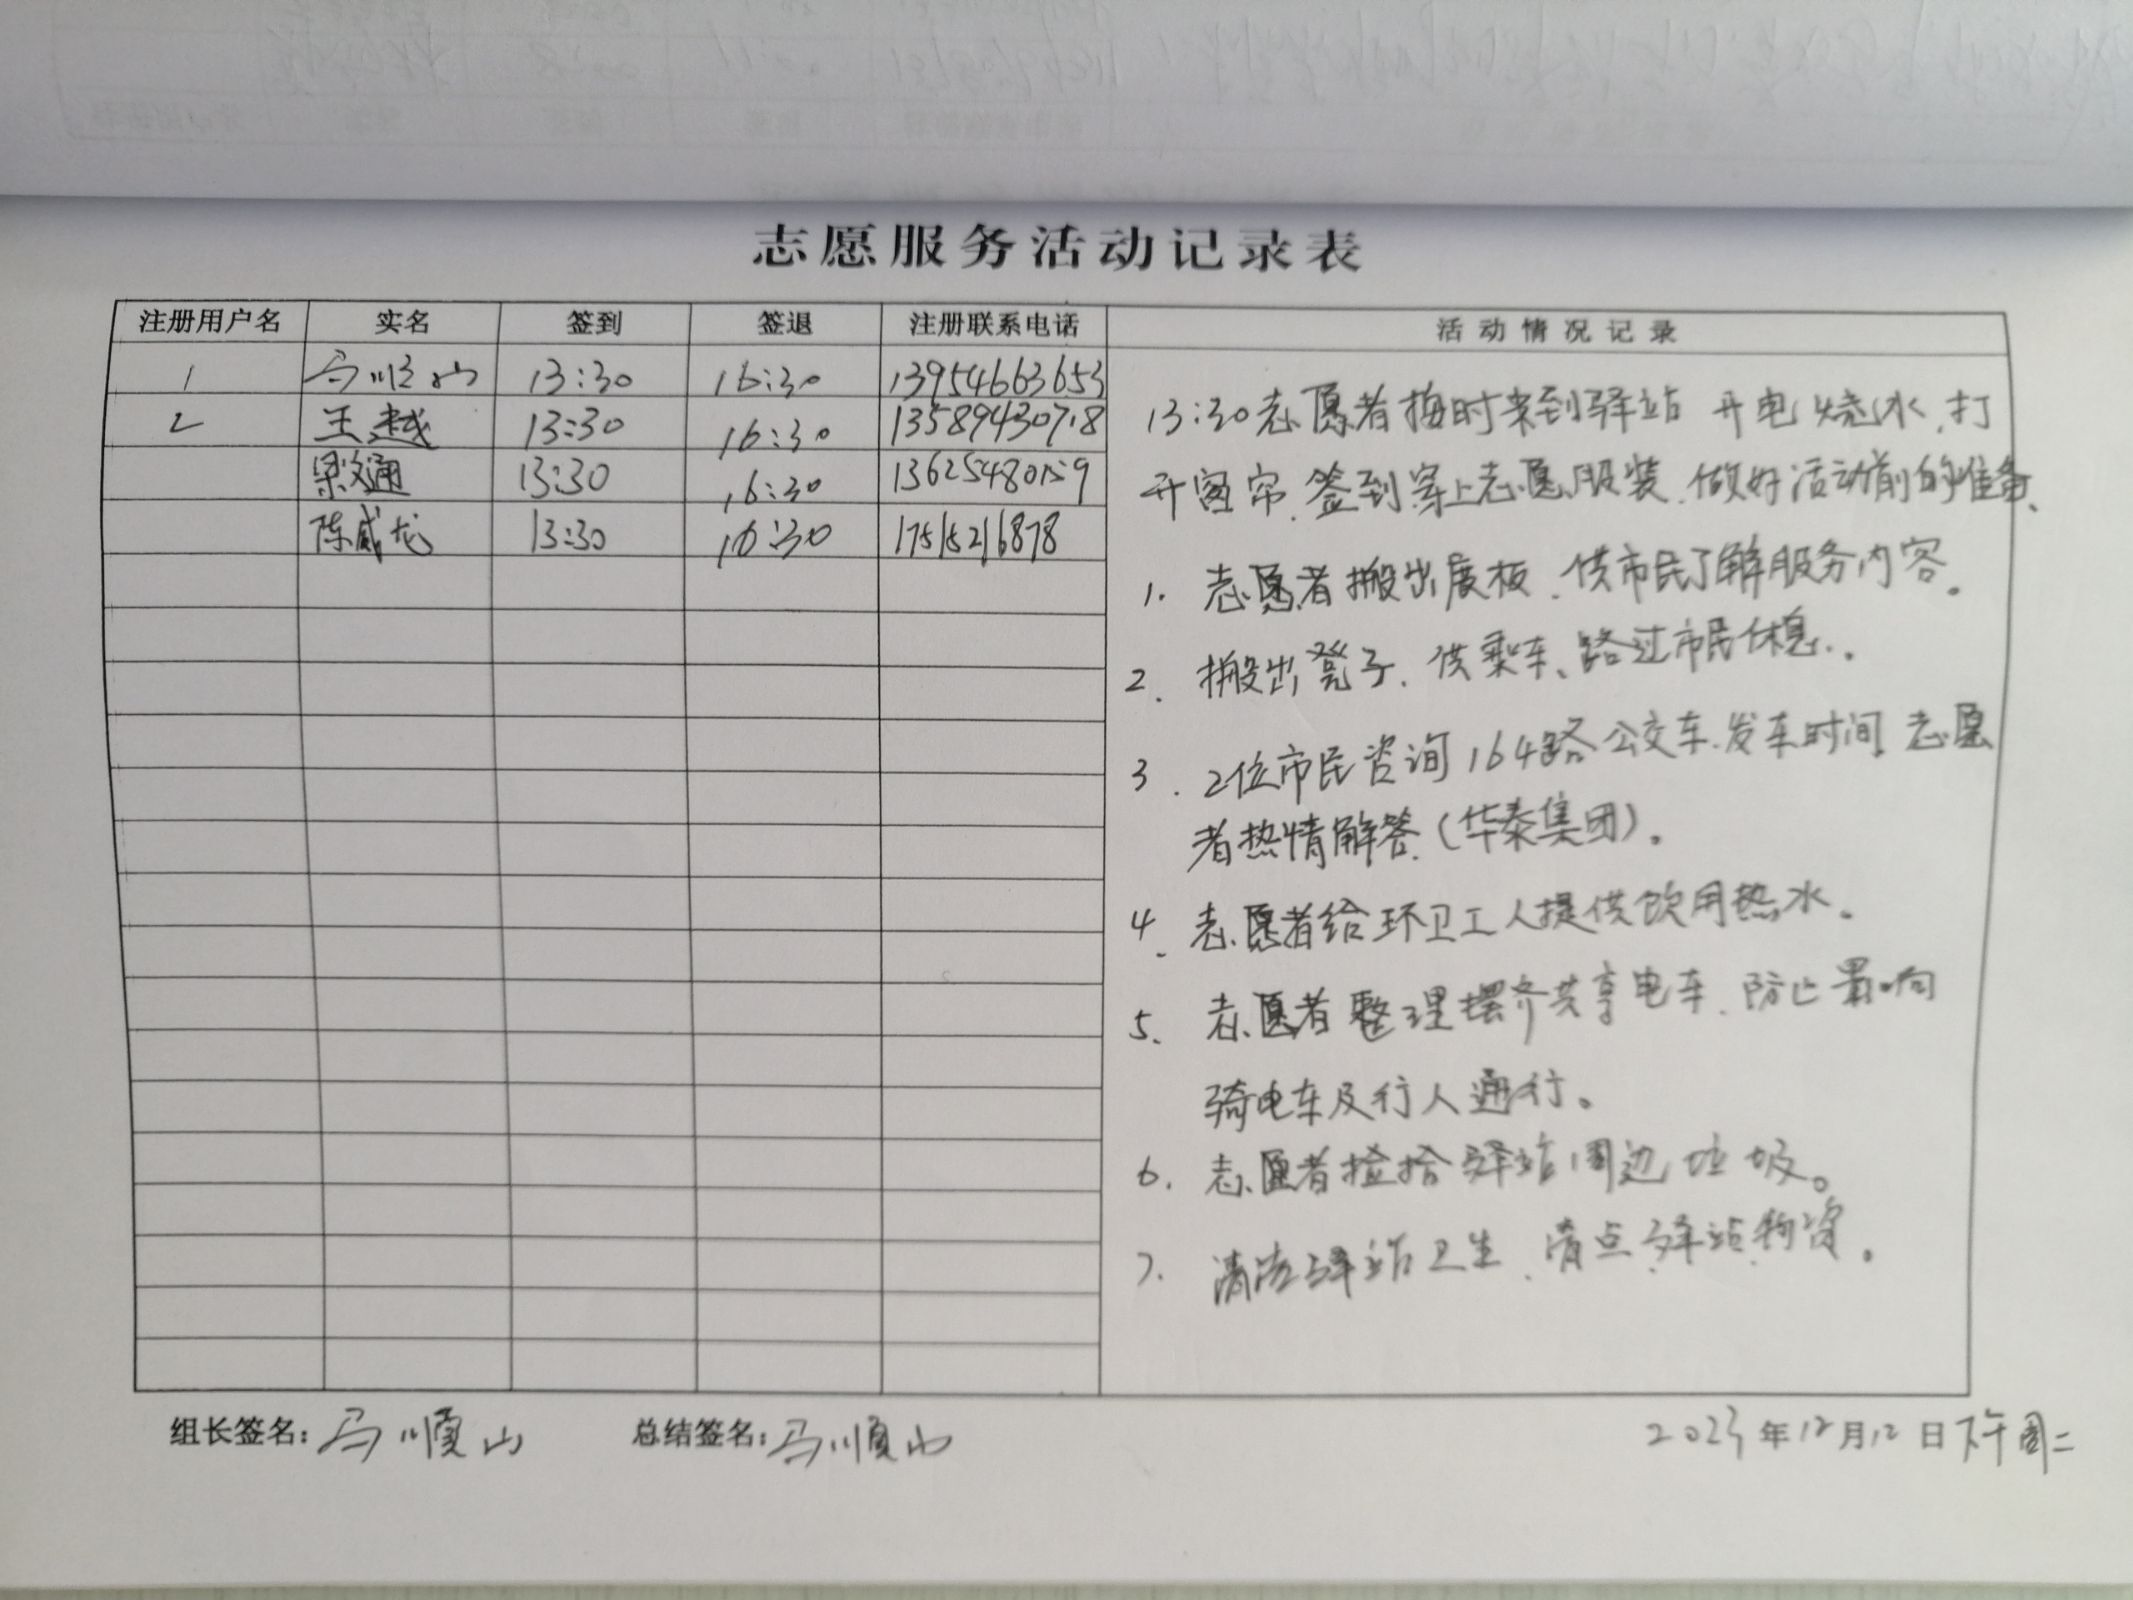 志愿服务活动记录表
注册用户名 实名 签到 签退 注册联系电话 活动情况记录
1 马顺山 13:30 16:30 13954663653
2 王越 13:30 16:30 13589430718
梁文通 13:30 16:30 13625480159
陈威龙 13:30 16:30 17515216878
13:30志愿者按时来到驿站 开电烧水,打
开窗帘、签到穿上志愿服装、做好活动前的准备、
1. 志愿者搬出展板、供市民了解服务内容。
2. 搬出凳子、供乘车、路过市民休息。
3. 2位市民咨询164路公交车发车时间 志愿
者热情解答(华泰集团)。
4. 志愿者给环卫工人提供饮用热水。
5. 志愿者整理摆齐共享电车、防止影响
骑电车及行人通行。
6. 志愿者捡拾驿站周边垃圾。
7. 清洁驿站卫生、清点驿站物资。
组长签名:马顺山 总结签名:马顺山 2023年12月12日下午周二